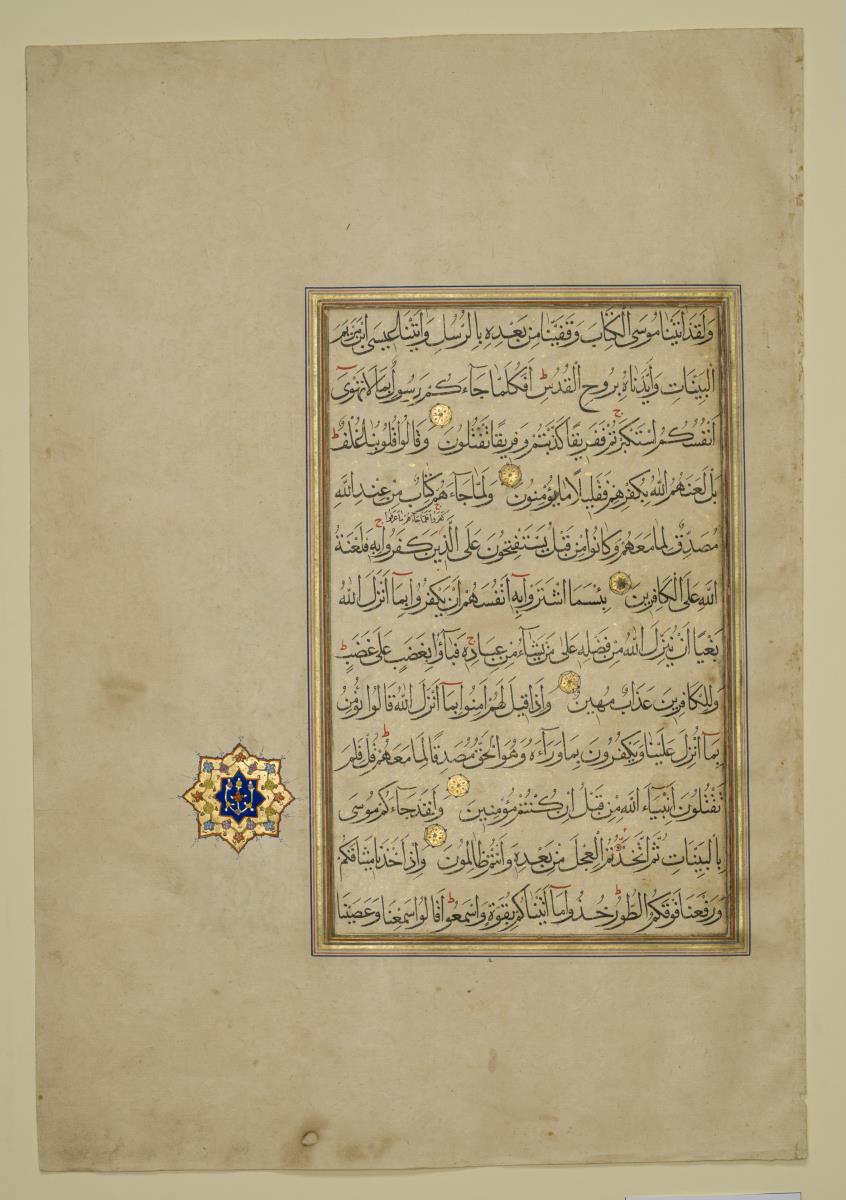 وَلَقَدْ اٰتَيْنَا مُوسَى الْكِتَابَ وَقَفَّيْنَا مِنْ بَعْدِهٖ بِالرُّسُلِ وَاٰتَيْنَا عِيسَى ابْنَ مَرْيَمَ
الْبَيِّنَاتِ وَاَيَّدْنَاهُ بِرُوحِ الْقُدُسِ ط اَفَكُلَّمَا جَآءَكُمْ رَسُولٌ بِمَا لَا تَهْوٰٓى
اَنْفُسُكُمُ اسْتَكْبَرْتُمْ ج فَفَرِيقًا كَذَّبْتُمْ وَفَرِيقًا تَقْتُلُونَ وَقَالُوا قُلُوبُنَا غُلْفٌ ط
بَلْ لَعَنَهُمُ اللّٰهُ بِكُفْرِهِمْ فَقَلِيلًا مَا يُؤْمِنُونَ وَلَمَّا جَآءَهُمْ كِتَابٌ مِنْ عِنْدِ اللّٰهِ
كَفَرُوا فَلَمَّا جَآءَهُمْ مَا عَرَفُوا
مُصَدِّقٌ لِمَا مَعَهُمْ وَكَانُوا مِنْ قَبْلُ يَسْتَفْتِحُونَ عَلَى الَّذِينَ كَفَرُوا بِهٖ ج فَلَعْنَةُ
اللّٰهِ عَلَى الْكَافِرِينَ بِئْسَمَا اشْتَرَوْا بِهٖٓ اَنْفُسَهُمْ اَنْ يَكْفُرُوا بِمَآ اَنْزَلَ اللّٰهُ
بَغْيًا اَنْ يُنَزِّلَ اللّٰهُ مِنْ فَضْلِهٖ عَلٰى مَنْ يَشَآءُ مِنْ عِبَادِهٖ ج فَبَآؤُا بِغَضَبٍ عَلٰى غَضَبٍ ط
وَلِلْكَافِرِينَ عَذَابٌ مُهِينٌ وَاِذَا قِيلَ لَهُمْ اٰمِنُوا بِمَآ اَنْزَلَ اللّٰهُ قَالُوا نُؤْمِنُ
بِمَآ اُنْزِلَ عَلَيْنَا وَيَكْفُرُونَ بِمَا وَرَآءَهُ وَهُوَ الْحَقُّ مُصَدِّقًا لِمَا مَعَهُمْ ط قُلْ فَلِمَ
تَقْتُلُونَ اَنْبِيَآءَ اللّٰهِ مِنْ قَبْلُ اِنْ كُنْتُمْ مُؤْمِنِينَ وَلَقَدْ جَآءَكُمْ مُوسٰى
بِالْبَيِّنَاتِ ثُمَّ اتَّخَذْتُمُ الْعِجْلَ مِنْ بَعْدِهٖ وَاَنْتُمْ ظَالِمُونَ وَاِذْ اَخَذْنَا مِيثَاقَكُمْ
وَرَفَعْنَا فَوْقَكُمُ الطُّورَ ط خُذُوا مَآ اٰتَيْنَاكُمْ بِقُوَّةٍ وَاسْمَعُوا ط قَالُوا سَمِعْنَا وَعَصَيْنَا